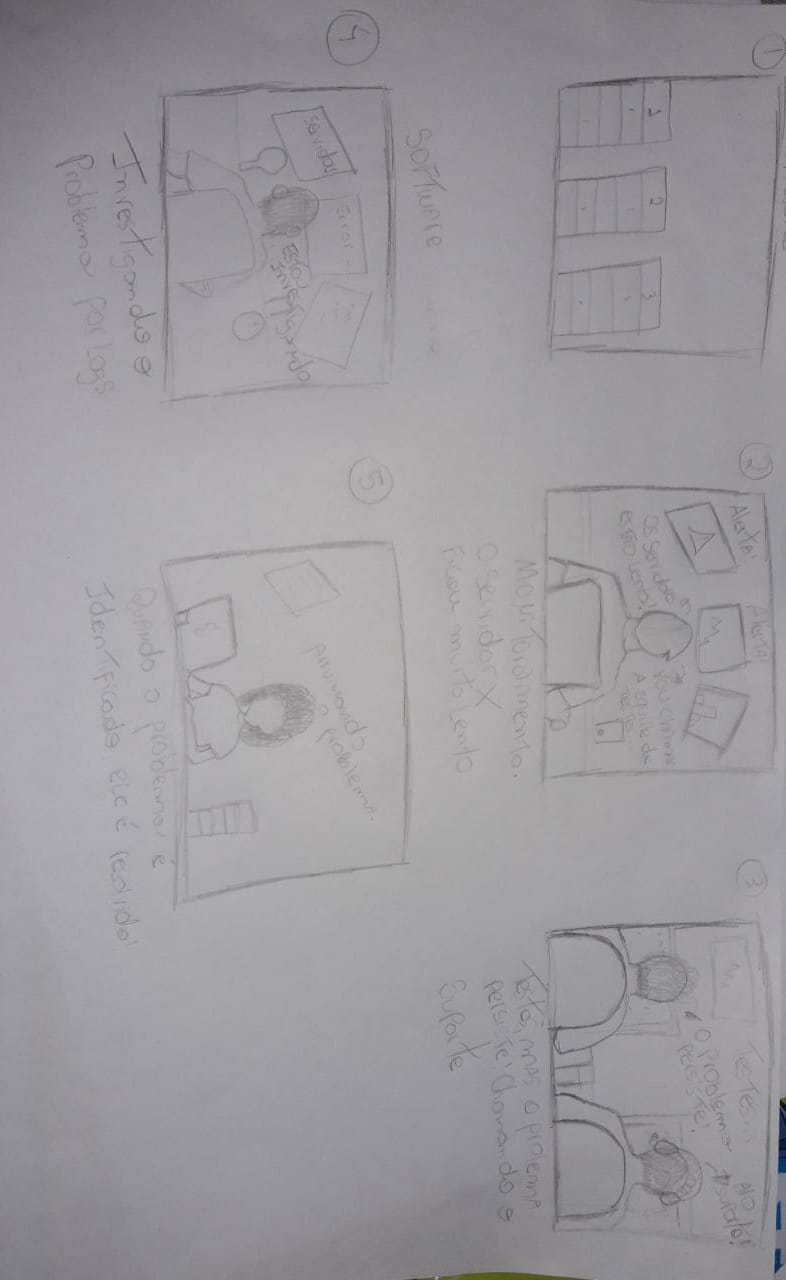 1
1
2
3
2
Alerta!
Alerta!
Os servidores
estão lento!
Vou chamar
A equipe de
teste...
Monitoramento.
O servidor X
Ficou muito Lento
3
Testes...
O problema
persiste!
Alô
suporte!
Testes, mas o problema
persiste! Chamando o
Suporte
SOFTWARE
4
Servidor
Error...
Estou
Investigando
Investigando o
Problema por Logs
5
Arrumando
o problema.
$
Quando o problema é
Identificado, ele é resolvido!